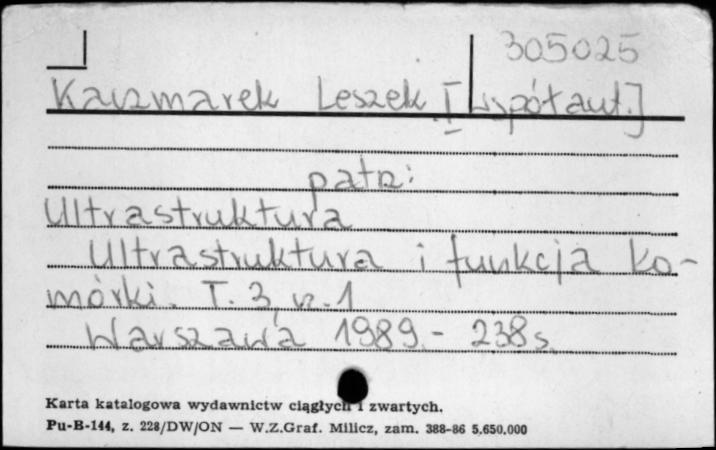 305025
Kaczmarek Leszek I [współaut.]
patrz:
Ultrastruktura
Ultrastruktura i funkcja ko-
mórki. T. 3, cz. 1
Warszawa 1989.- 238s.
Karta katalogowa wydawnictw ciągłych i zwartych.
Pu-B-144, z. 228/DW/ON — W.Z.Graf. Milicz, zam. 388-86 5.650.000